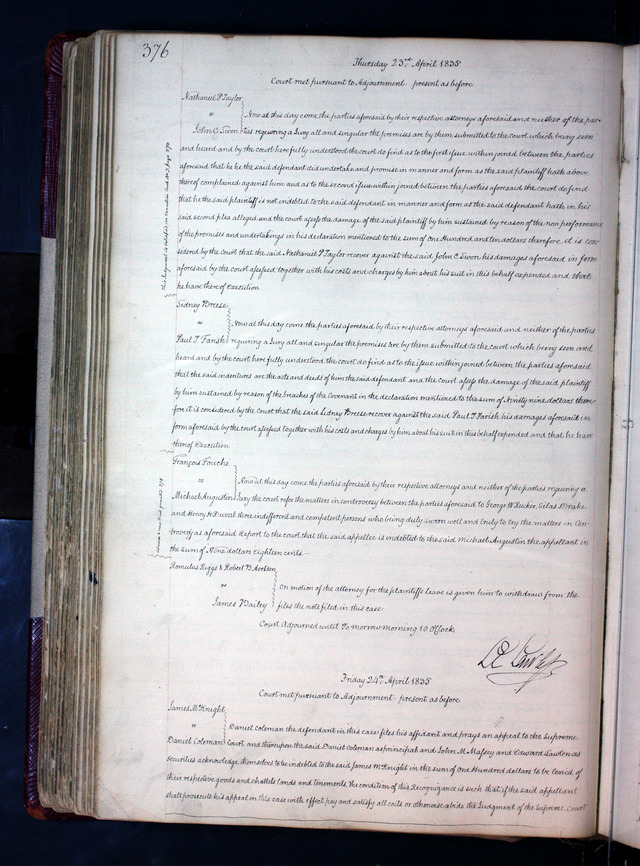 376
Thursday 23rd April 1835
Court met pursuant to Adjournment present as before
Nathaniel P Taylor
vs
Now at this day come the parties aforesaid by their respective attorneys aforesaid and neither of the par-
John C. Swon ties requiring a Jury all and singular the premises are by them submitted to the court which being seen
and heard and by the court here fully understood the court do find as to the first issue within joined between the parties
aforesaid that he the said defendant did undertake and promise in manner and form as the said plaintiff hath above
thereof complained against him and as to the second issue within joined between the parties aforesaid the court do find
that he the said plaintiff is not indebted to the said defendant in manner and form as the said defendant hath in his
second plea alledged and the court assess the damage of the said plaintiff by him sustained by reason of the non performance
of the promises and undertakings in his declaration mentioned to the sum of One Hundred and ten dollars therefore it is con-
sidered by the court that the said Nathaniel P Taylor recover against the said John C. Swon his damages aforesaid in form
aforesaid by the court assessed together with his costs and charges by him about his suit in this behalf expended and that
he have thereof Execution
Sidney Breese
vs
Now at this day come the parties aforesaid by their respective attorneys aforesaid and neither of the parties
Paul T Farish requiring a Jury all and singular the premises are by them submitted to the court which being seen and
heard and by the court here fully understood the court do find as to the issue within joined between the parties aforesaid
that the said indentures are the acts and deeds of him the said defendant and the court assess the damage of the said plaintiff
by him sustained by reason of the breaches of the Covenants in the declaration mentioned to the sum of Ninety nine dollars there-
fore it is considered by the Court that the said Sidney Breese recover against the said Paul T Farish his damages aforesaid in
form aforesaid by the court assessed together with his costs and charges by him about his suit in this behalf expended and that he have
thereof Execution
François Fouche
vs
Now at this day come the parties aforesaid by their respective attorneys and neither of the parties requiring a
Michael Augustin Jury the court refer the matters in controversy between the parties aforesaid to George W Tucker, Silas Drake
and Henry H Duval three indifferent and competent persons who being duly sworn well and truly to try the matters in Con-
troversy as aforesaid report to the court that the said appellee is indebted to the said Michael Augustin the appellant in
the sum of Nine dollars eighteen cents.
Romulus Riggs & Robert B
vs
On motion of the attorney for the plaintiffs leave is given him to withdraw from the
James Bailey files the note filed in this case
Court Adjourned until To morrow morning 10 O'Clock
Friday 24th April 1835
Court met pursuant to Adjournment present as before
James McKnight
vs
Daniel Coleman the defendant in this case files his affidavit and prays an appeal to the Supreme
Daniel Coleman Court and thereupon the said Daniel Coleman as principal and John M Massey and Edward
securities acknowledge themselves to be indebted to the said James McKnight in the sum of One Hundred dollars to be levied of
their respective goods and chattels lands and tenements, the condition of this Recognizance is such that if the said appellant
shall prosecute his appeal in this case with effect pay and satisfy all costs or otherwise abide the Judgment of the Supreme Court